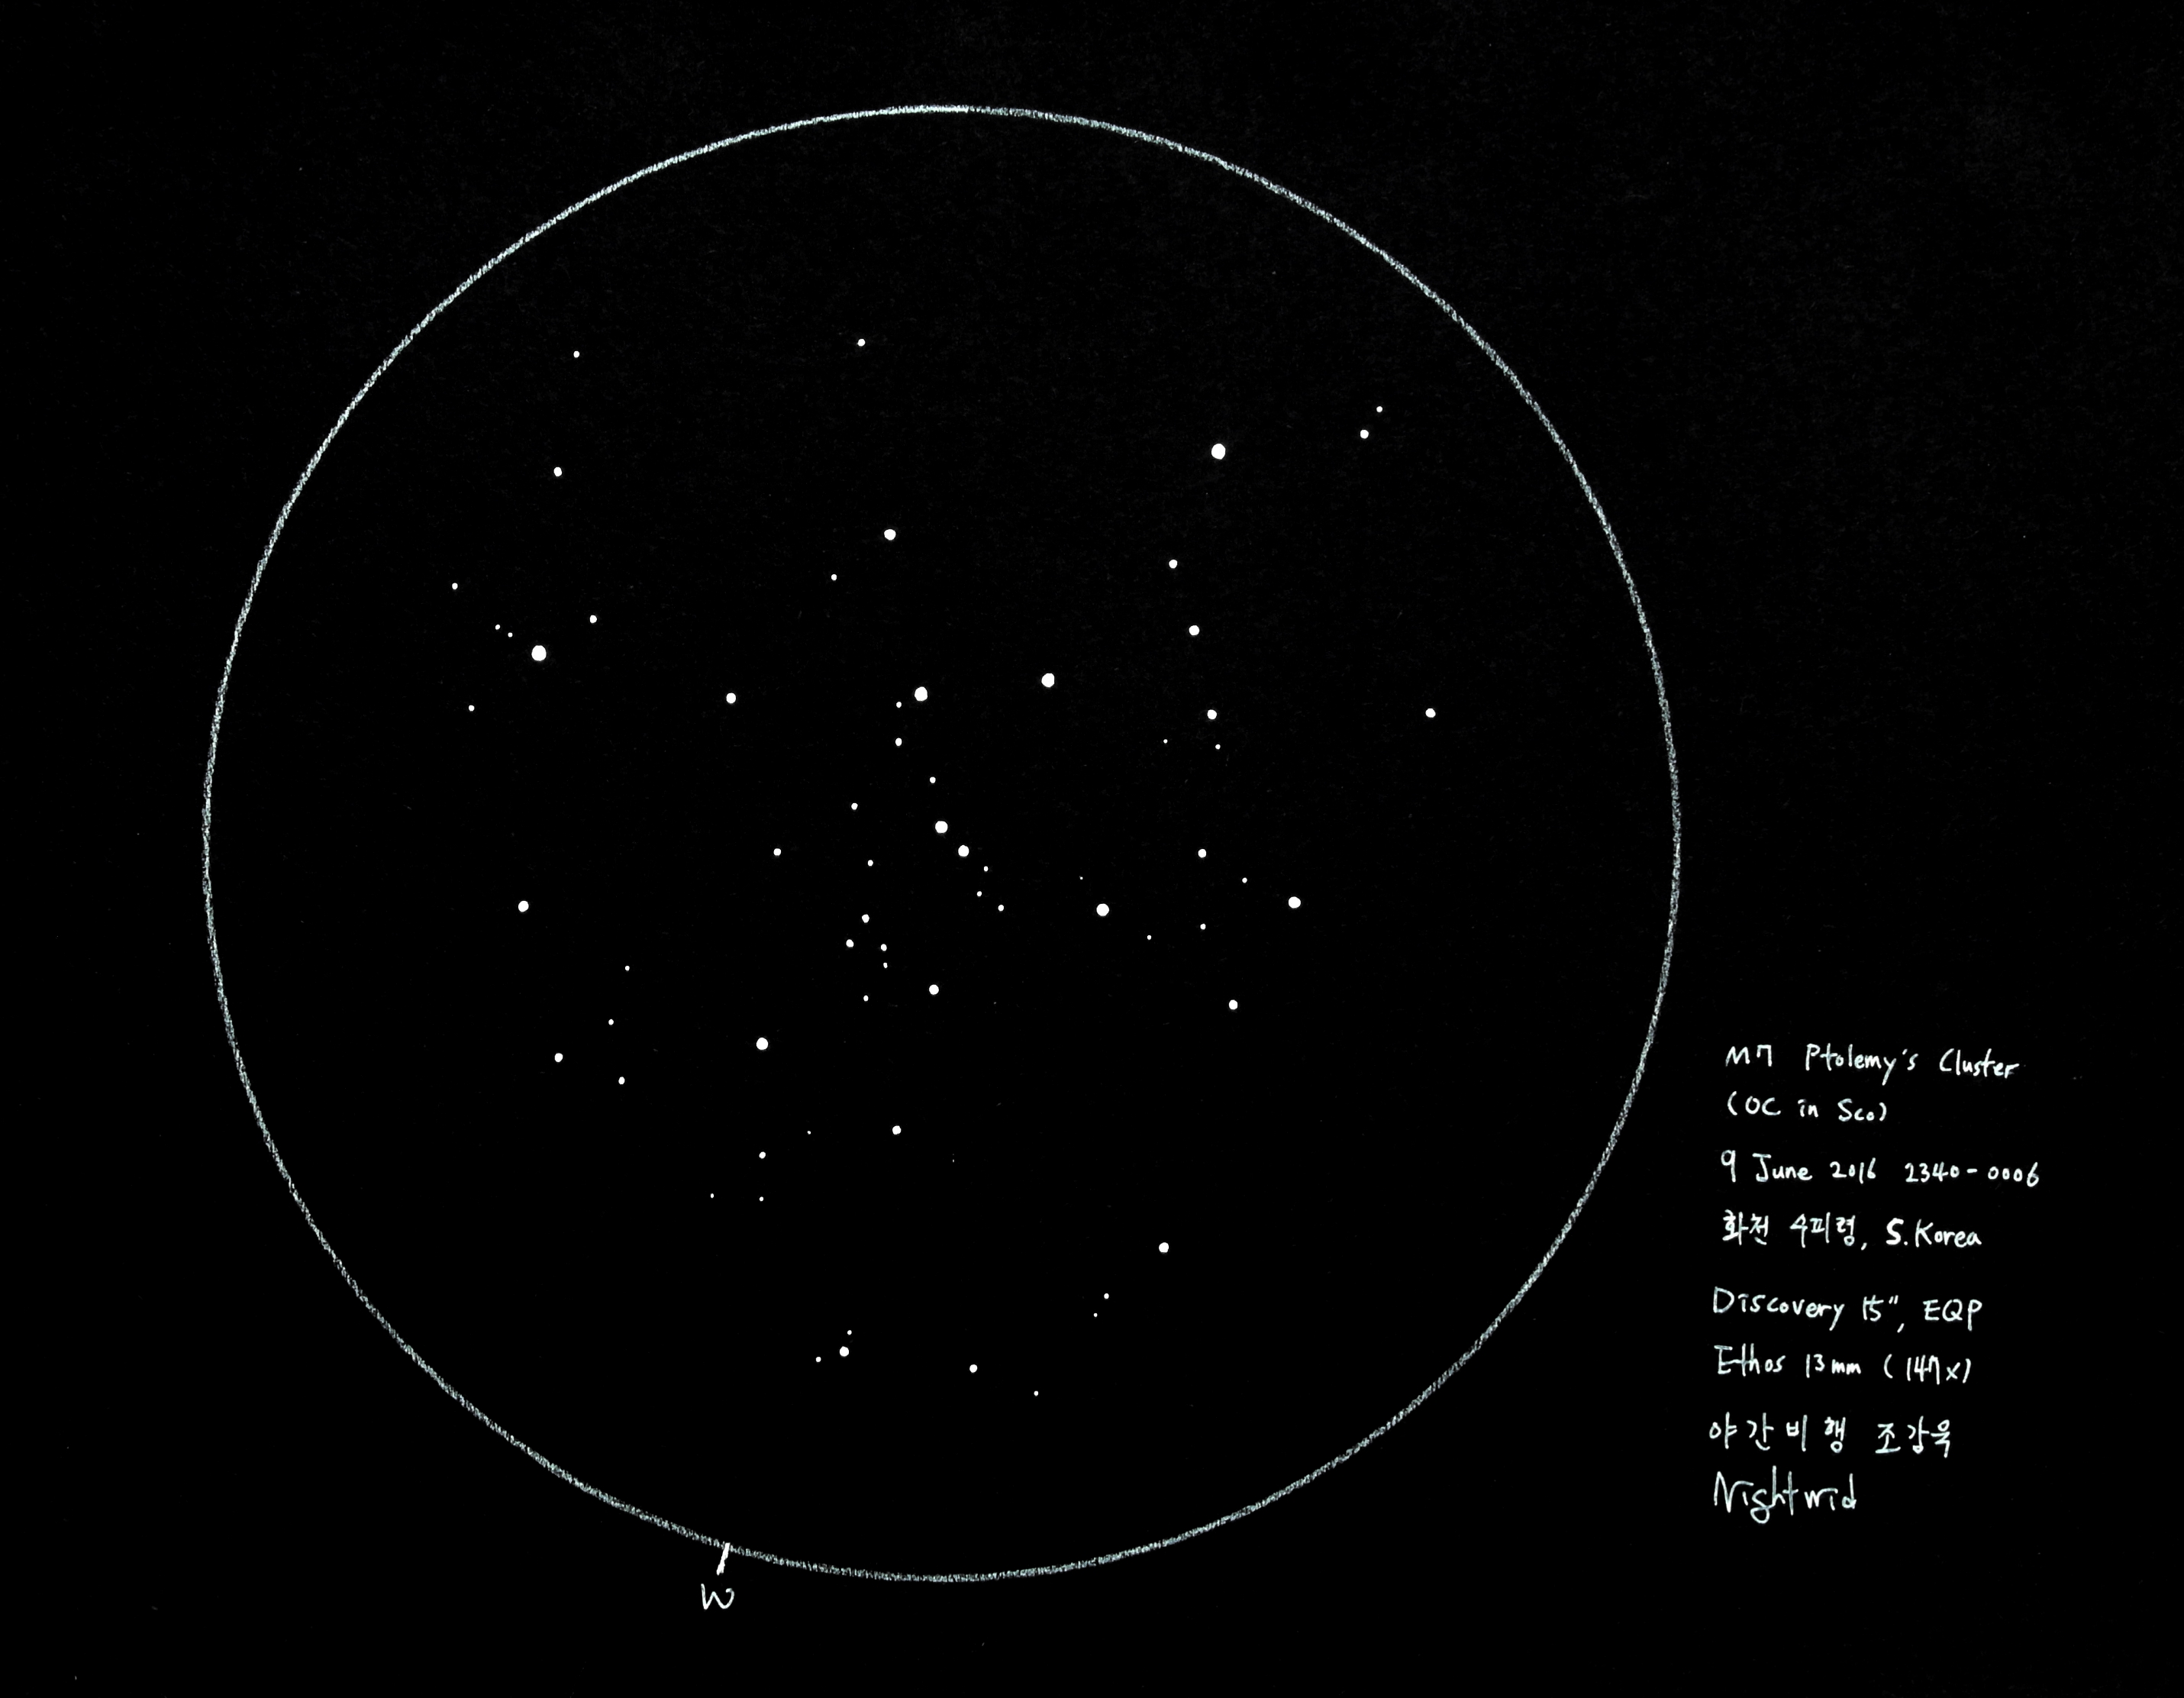 M7 Ptolemy's Cluster
(OC in Sco)
9 June 2016 2340-0006
화천 수피령, S.Korea
Discovery 15", EQP
Ethos 13mm (147x)
야간비행 조강욱
Nightwid
W